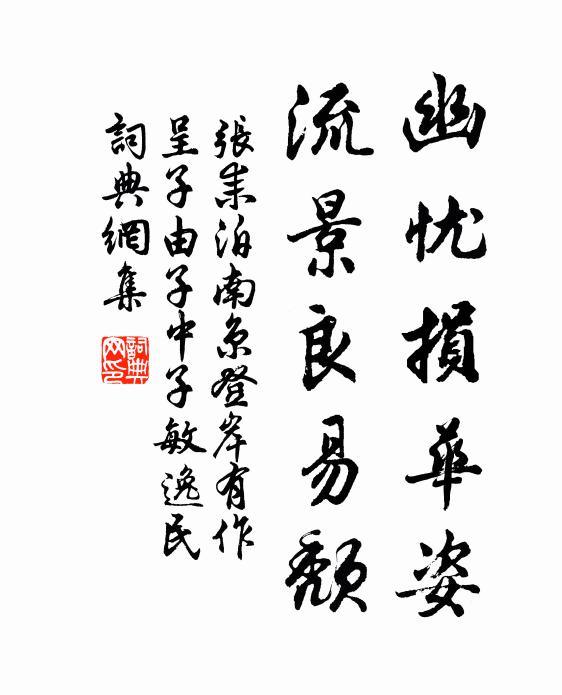 幽忧損華姿
流景良易颓
張耒泊南京登岸有作
呈子由子中子敏逸民
詞典網集
詞典网印